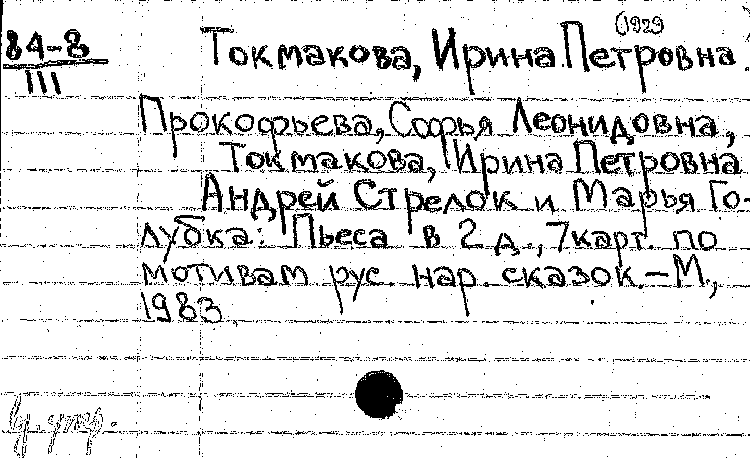 (1929
84-8 Токмакова, Ирина Петровна.
III
Прокофьева, Софья Леонидовна,
Токмакова, Ирина Петровна
Андрей Стрелок и Марья Го-
лубка: Пьеса в 2 д., 7 карт. по
мотивам рус. нар. сказок.-М.,
1983